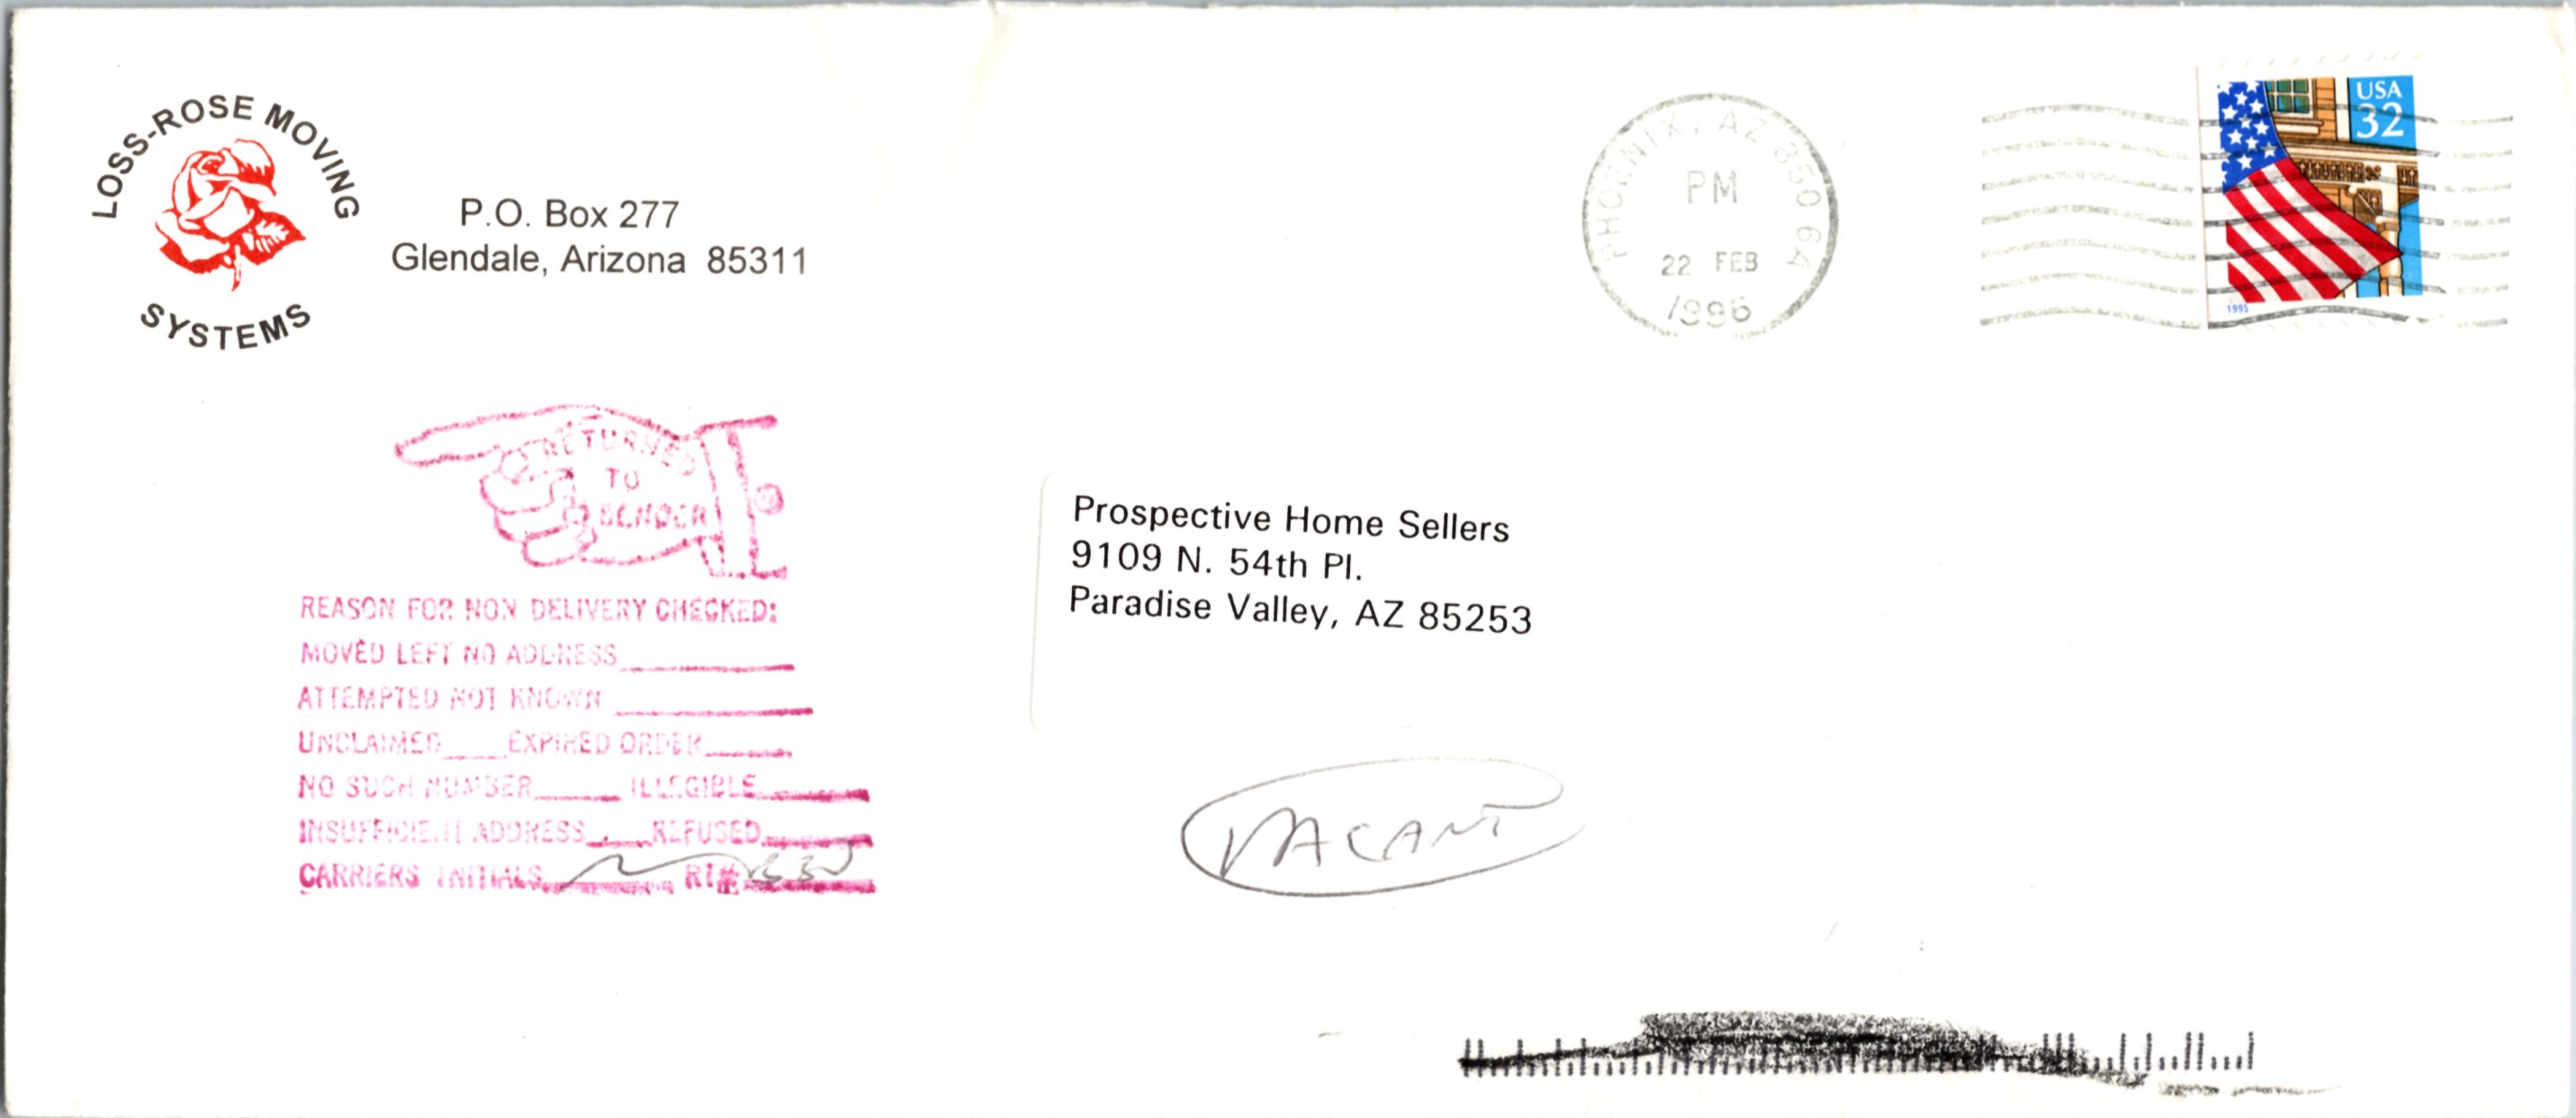 LOSS-ROSE MOVING
SYSTEMS
P.O. Box 277
Glendale, Arizona 85311
PHOENIX, AZ 850 64
PM
22 FEB
1996
USA
32
1995
RETURNED
TO
SENDER
REASON FOR NON DELIVERY CHECKED:
MOVED LEFT NO ADDRESS
ATTEMPTED NOT KNOWN
UNCLAIMED EXPIRED ORDER
NO SUCH NUMBER ILLEGIBLE
INSUFFICIENT ADDRESS REFUSED
CARRIERS INITIALS RT#
Prospective Home Sellers
9109 N. 54th Pl.
Paradise Valley, AZ 85253
VACANT